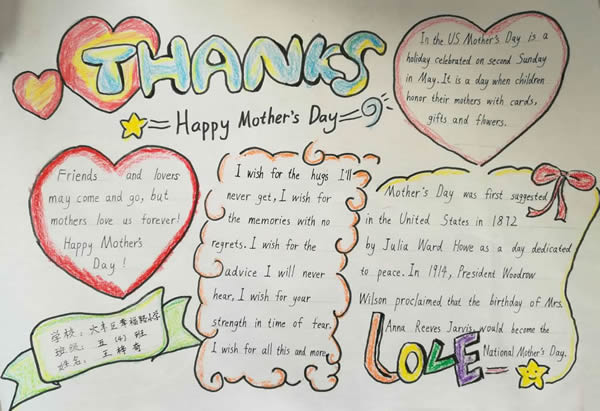 THANKS
Happy Mother's Day
In the US Mother's Day is a
holiday celebrated on second Sunday
in May. It is a day when children
honor their mothers with cards,
gifts and flowers.
Friends and lovers
may come and go, but
mothers love us forever!
Happy Mother's
Day!
I wish for the hugs I'll
never get, I wish for
the memories with no
regrets. I wish for the
advice I will never
hear, I wish for your
strength in time of fear.
I wish for all this and more
Mother's Day was first suggested
in the United States in 1872
by Julia Ward Howe as a day dedicated
to peace. In 1914, President Woodrow
Wilson proclaimed that the birthday of Mrs.
Anna Reeves Jarvis would become the
National Mother's Day.
LOVE
学校:大丰区幸福路小学
班级:五(4)班
姓名:王